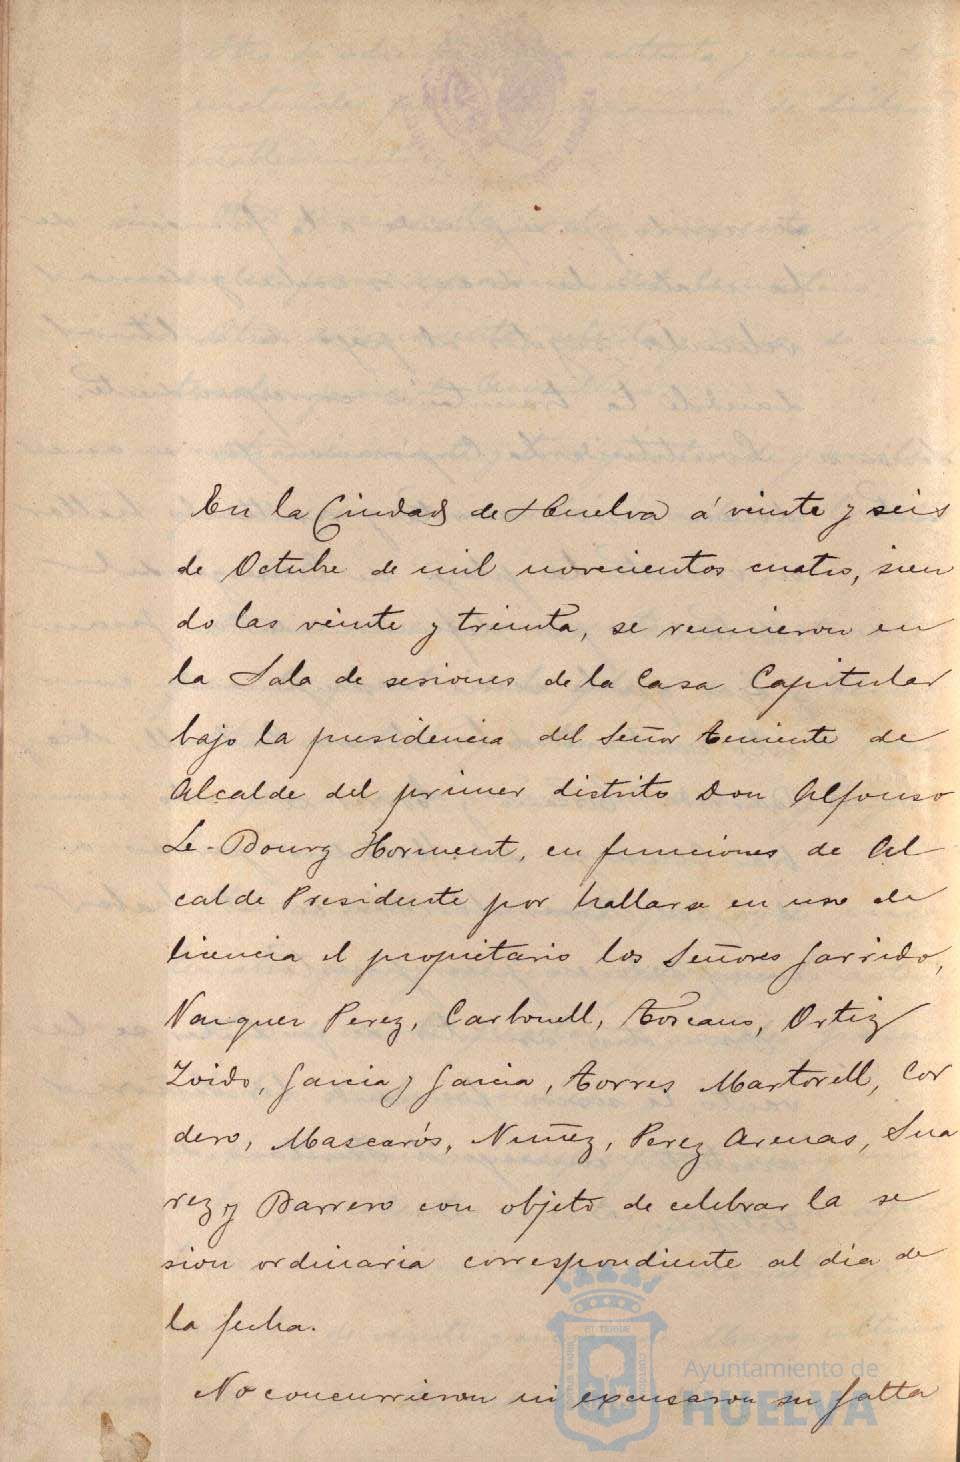 En la Ciudad de Huelva á veinte y seis
de Octubre de mil novecientos cuatro, sien
do las veinte y treinta, se reunieron en
la Sala de sesiones de la Casa Capitular
bajo la presidencia del Señor Teniente de
Alcalde del primer distrito Don Alfonso
Le-Bourg Horment, en funciones de Al
calde Presidente por hallarse en uso de
licencia el propietario los Señores Garrido,
Vazquez Perez, Carbonell, Toscano, Ortiz
Zoido, Garcia y Garcia, Torres Martorell, Cor
dero, Mascarós, Nuñez, Perez Arenas, Sua
rez y Barrero con objeto de celebrar la se
sion ordinaria correspondiente al dia de
la fecha.
No concurrieron ni excusaron su falta
Ayuntamiento de
HUELVA